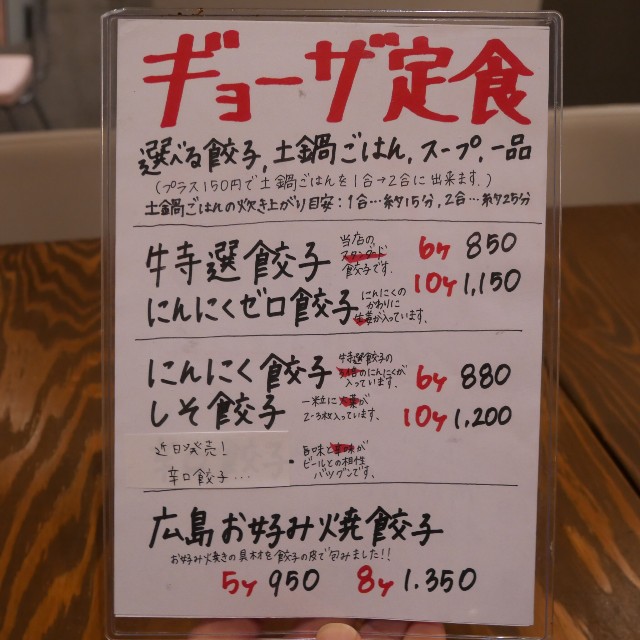 ギョーザ定食
選べる餃子,土鍋ごはん,スープ,一品
(プラス150円で土鍋ごはんを1合→2合に出来ます.)
土鍋ごはんの炊き上がり目安:1合…約15分,2合…約25分
特選餃子 当店の スタンダード 餃子です. 6ケ 850
10ケ 1,150
にんにくゼロ餃子 にんにくの かわりに 生姜が入っています.
にんにく餃子 特選餃子の 3倍のにんにくが 入っています. 6ケ 880
しそ餃子 一粒に大葉が 2~3枚入っています. 10ケ 1,200
近日発売! 辛口餃子… ・旨味と辛味が ビールとの相性 バツグンです.
広島お好み焼餃子
お好み焼きの具材を餃子の皮で包みました!!
5ケ 950 8ケ 1.350